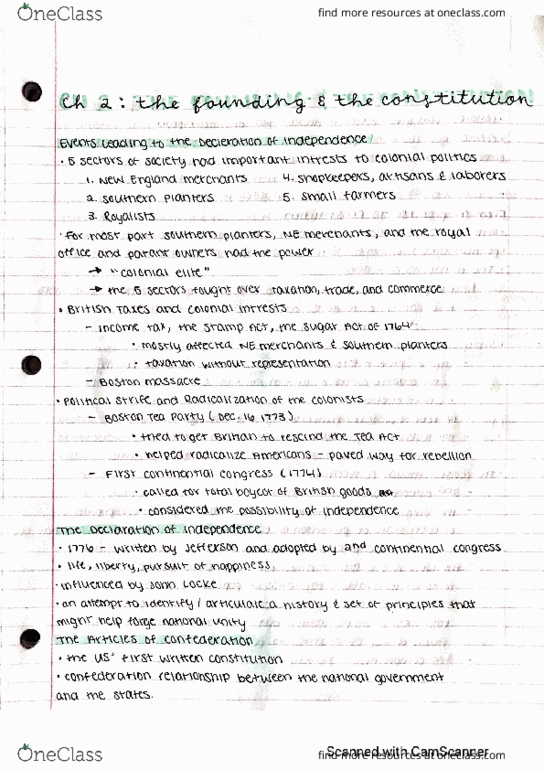 OneClass
find more resources at oneclass.com
Ch 2: the founding & the constitution
Events leading to the Decleration of Independence
• 5 sectors of society had important intrests to colonial politics
1. New England merchants 4. shopkeepers, artisans & laborers
2. southern planters 5. small farmers
3. Royalists
• For most part southern planters, NE merchants, and the royal
office and patant owners had the power
→ "colonial elite"
→ the 5 sectors fought over taxation, trade, and commerce
• British Taxes and colonial intrests
- Income tax, the Stamp Act, the Sugar Act of 1764
• mostly affected NE merchants & southern planters
• taxation without representation
- Boston massacre
• Political strife and Radicalization of the colonists
- Boston Tea Party (Dec. 16 1773)
• tried to get Britian to rescind the Tea Act
• helped radicalize Americans - paved way for rebellion
- First continental congress (1774)
• called for total boycot of British goods
• considered the possibility of independence
The Declaration of Independence
• 1776 - written by Jefferson and adopted by 2nd continental congress
• life, liberty, pursuit of happiness
• influenced by John Locke
• an attempt to identify / articulate a history & set of principles that
might help forge national unity
The Articles of Confederation
• the US' first written constitution
• confederation relationship between the national government
and the states.
OneClass
Scanned with CamScanner
find more resources at oneclass.com